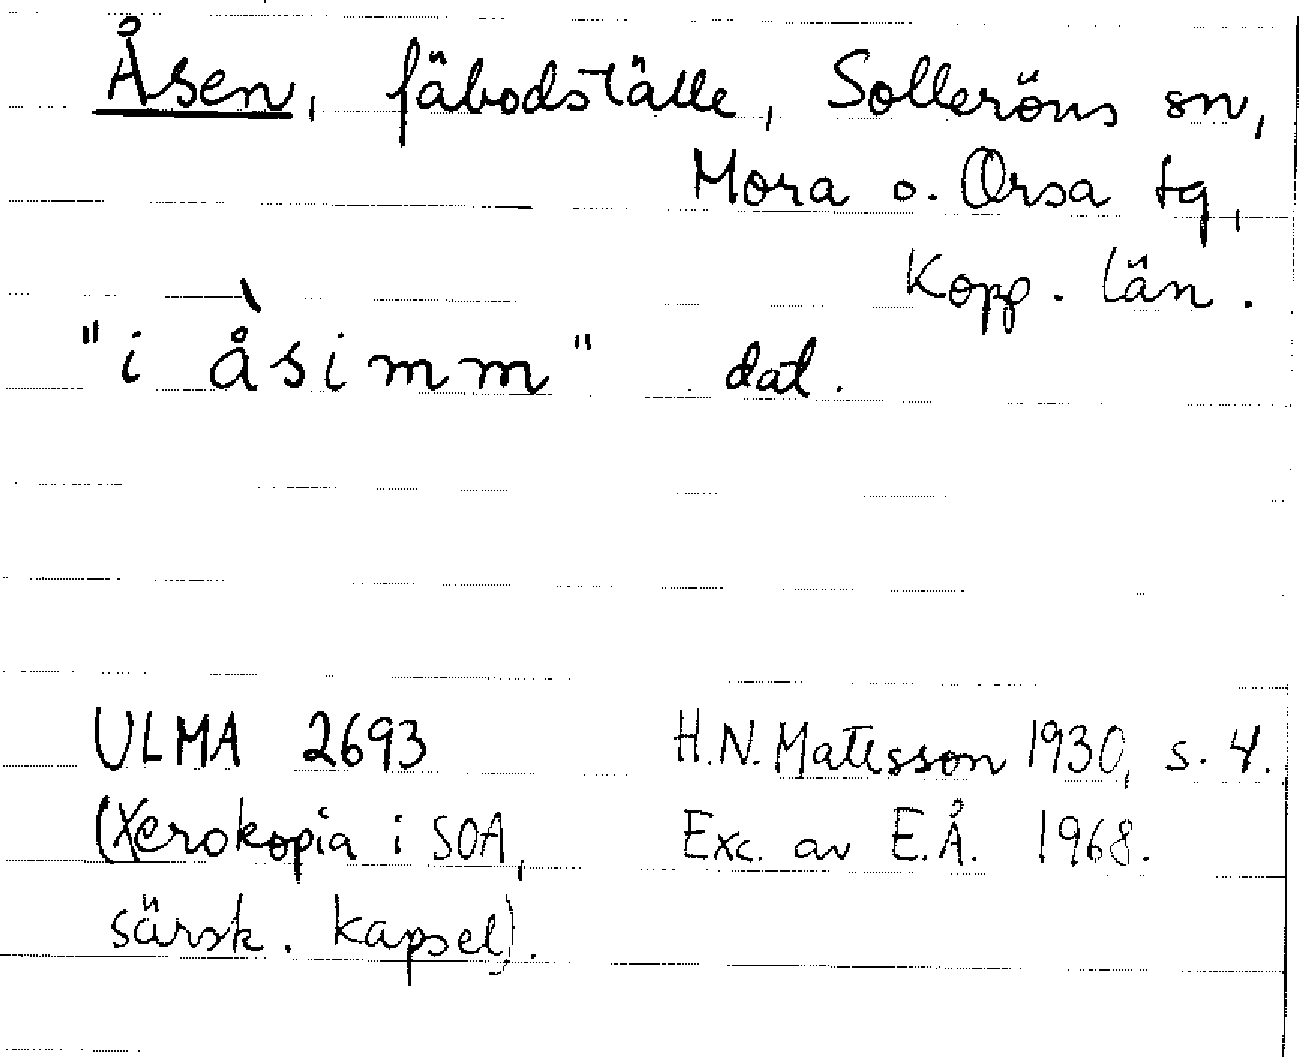 Åsen, fäbodställe, Solleröns sn,
Mora o. Orsa tg,
Kopp. län.
"i å̀simm" dat.
ULMA 2693 H.N. Matsson 1930, s. 4.
(Xerokopia i SOA, Exc. av E.Å. 1968.
särsk. kapsel).